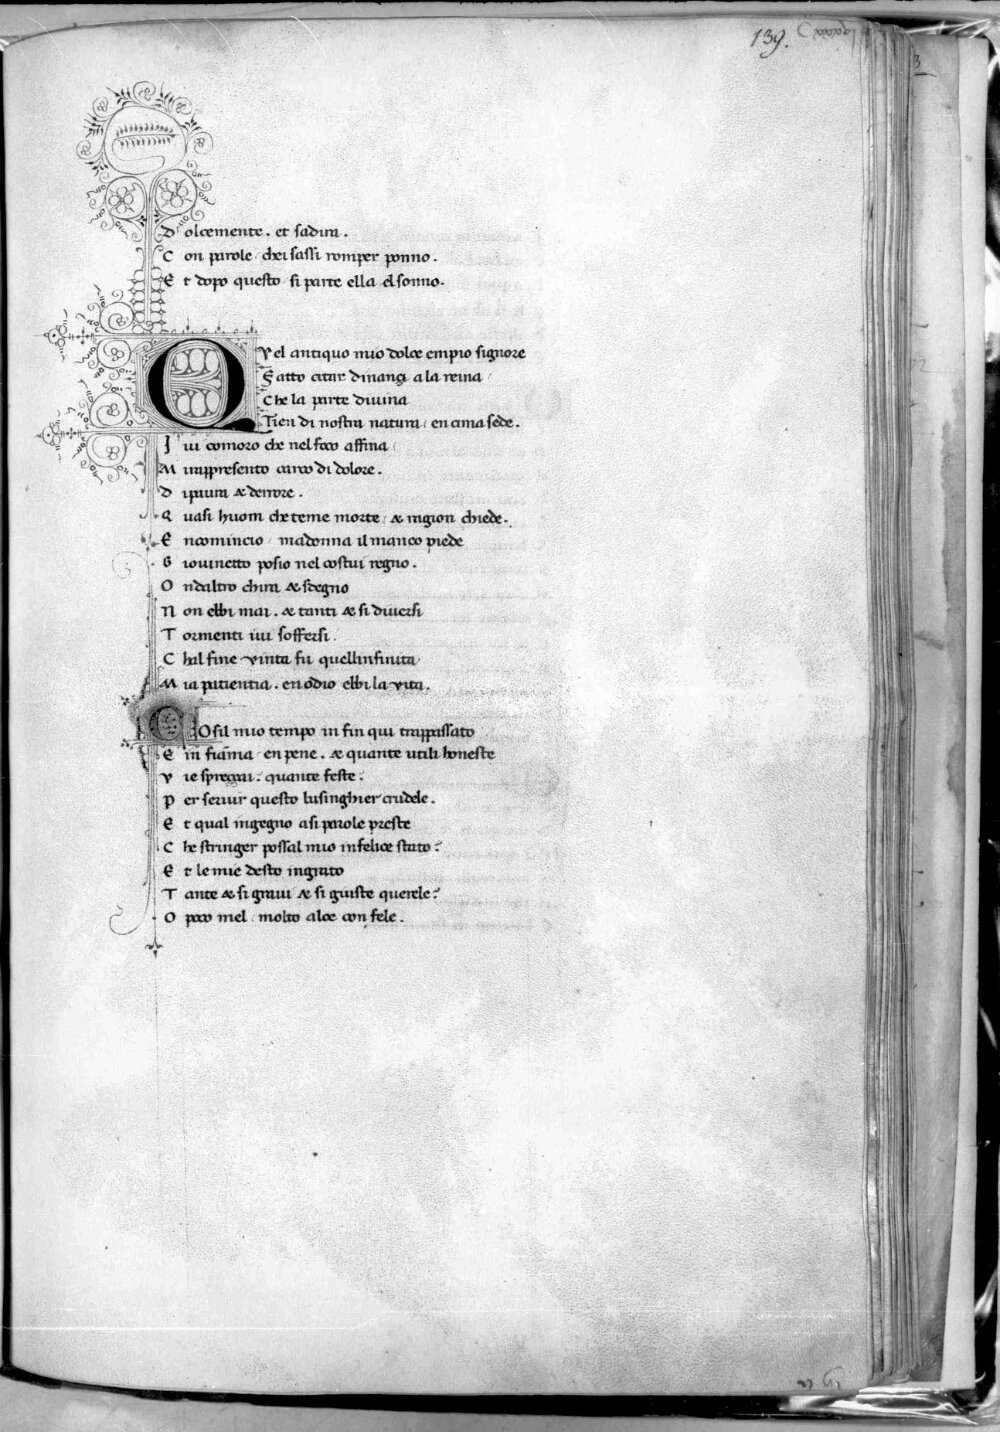 139.
Dolcemente. et sadira.
Con parole chei sassi romper ponno.
Et dopo questo si parte ella elsonno.
Qvel antiquo mio dolce empio signore
Fatto citar dinançi a la reina
Che la parte divina
Tien di nostra natura / en cima sede.
Ivi comoro che nel foco affina
Mirappresento carco di dolore.
Dipaura & derrore.
Quasi huom che teme morte / & ragion chiede.
Encomincio / madonna il manco piede
Giovinetto posio nel costui regno.
Ondaltro chira & sdegno
Non ebbi mai. & tanti & si diversi
Tormenti ivi soffersi.
Chal fine vinta fu quellinfinita
Mia patientia. en odio ebbi la vita.
Cosil mio tempo in fin qui trappassato
E in fiamma en pene. & quante utili honeste
Vie sprezzai. quante feste.
Per servir questo lusinghier crudele.
Et qual ingegno a si parole preste
Che stringer possal mio infelice stato?
Et le mie desto ingrato
Tante & si gravi & si giuste querele?
O poco mel / molto aloe con fele.